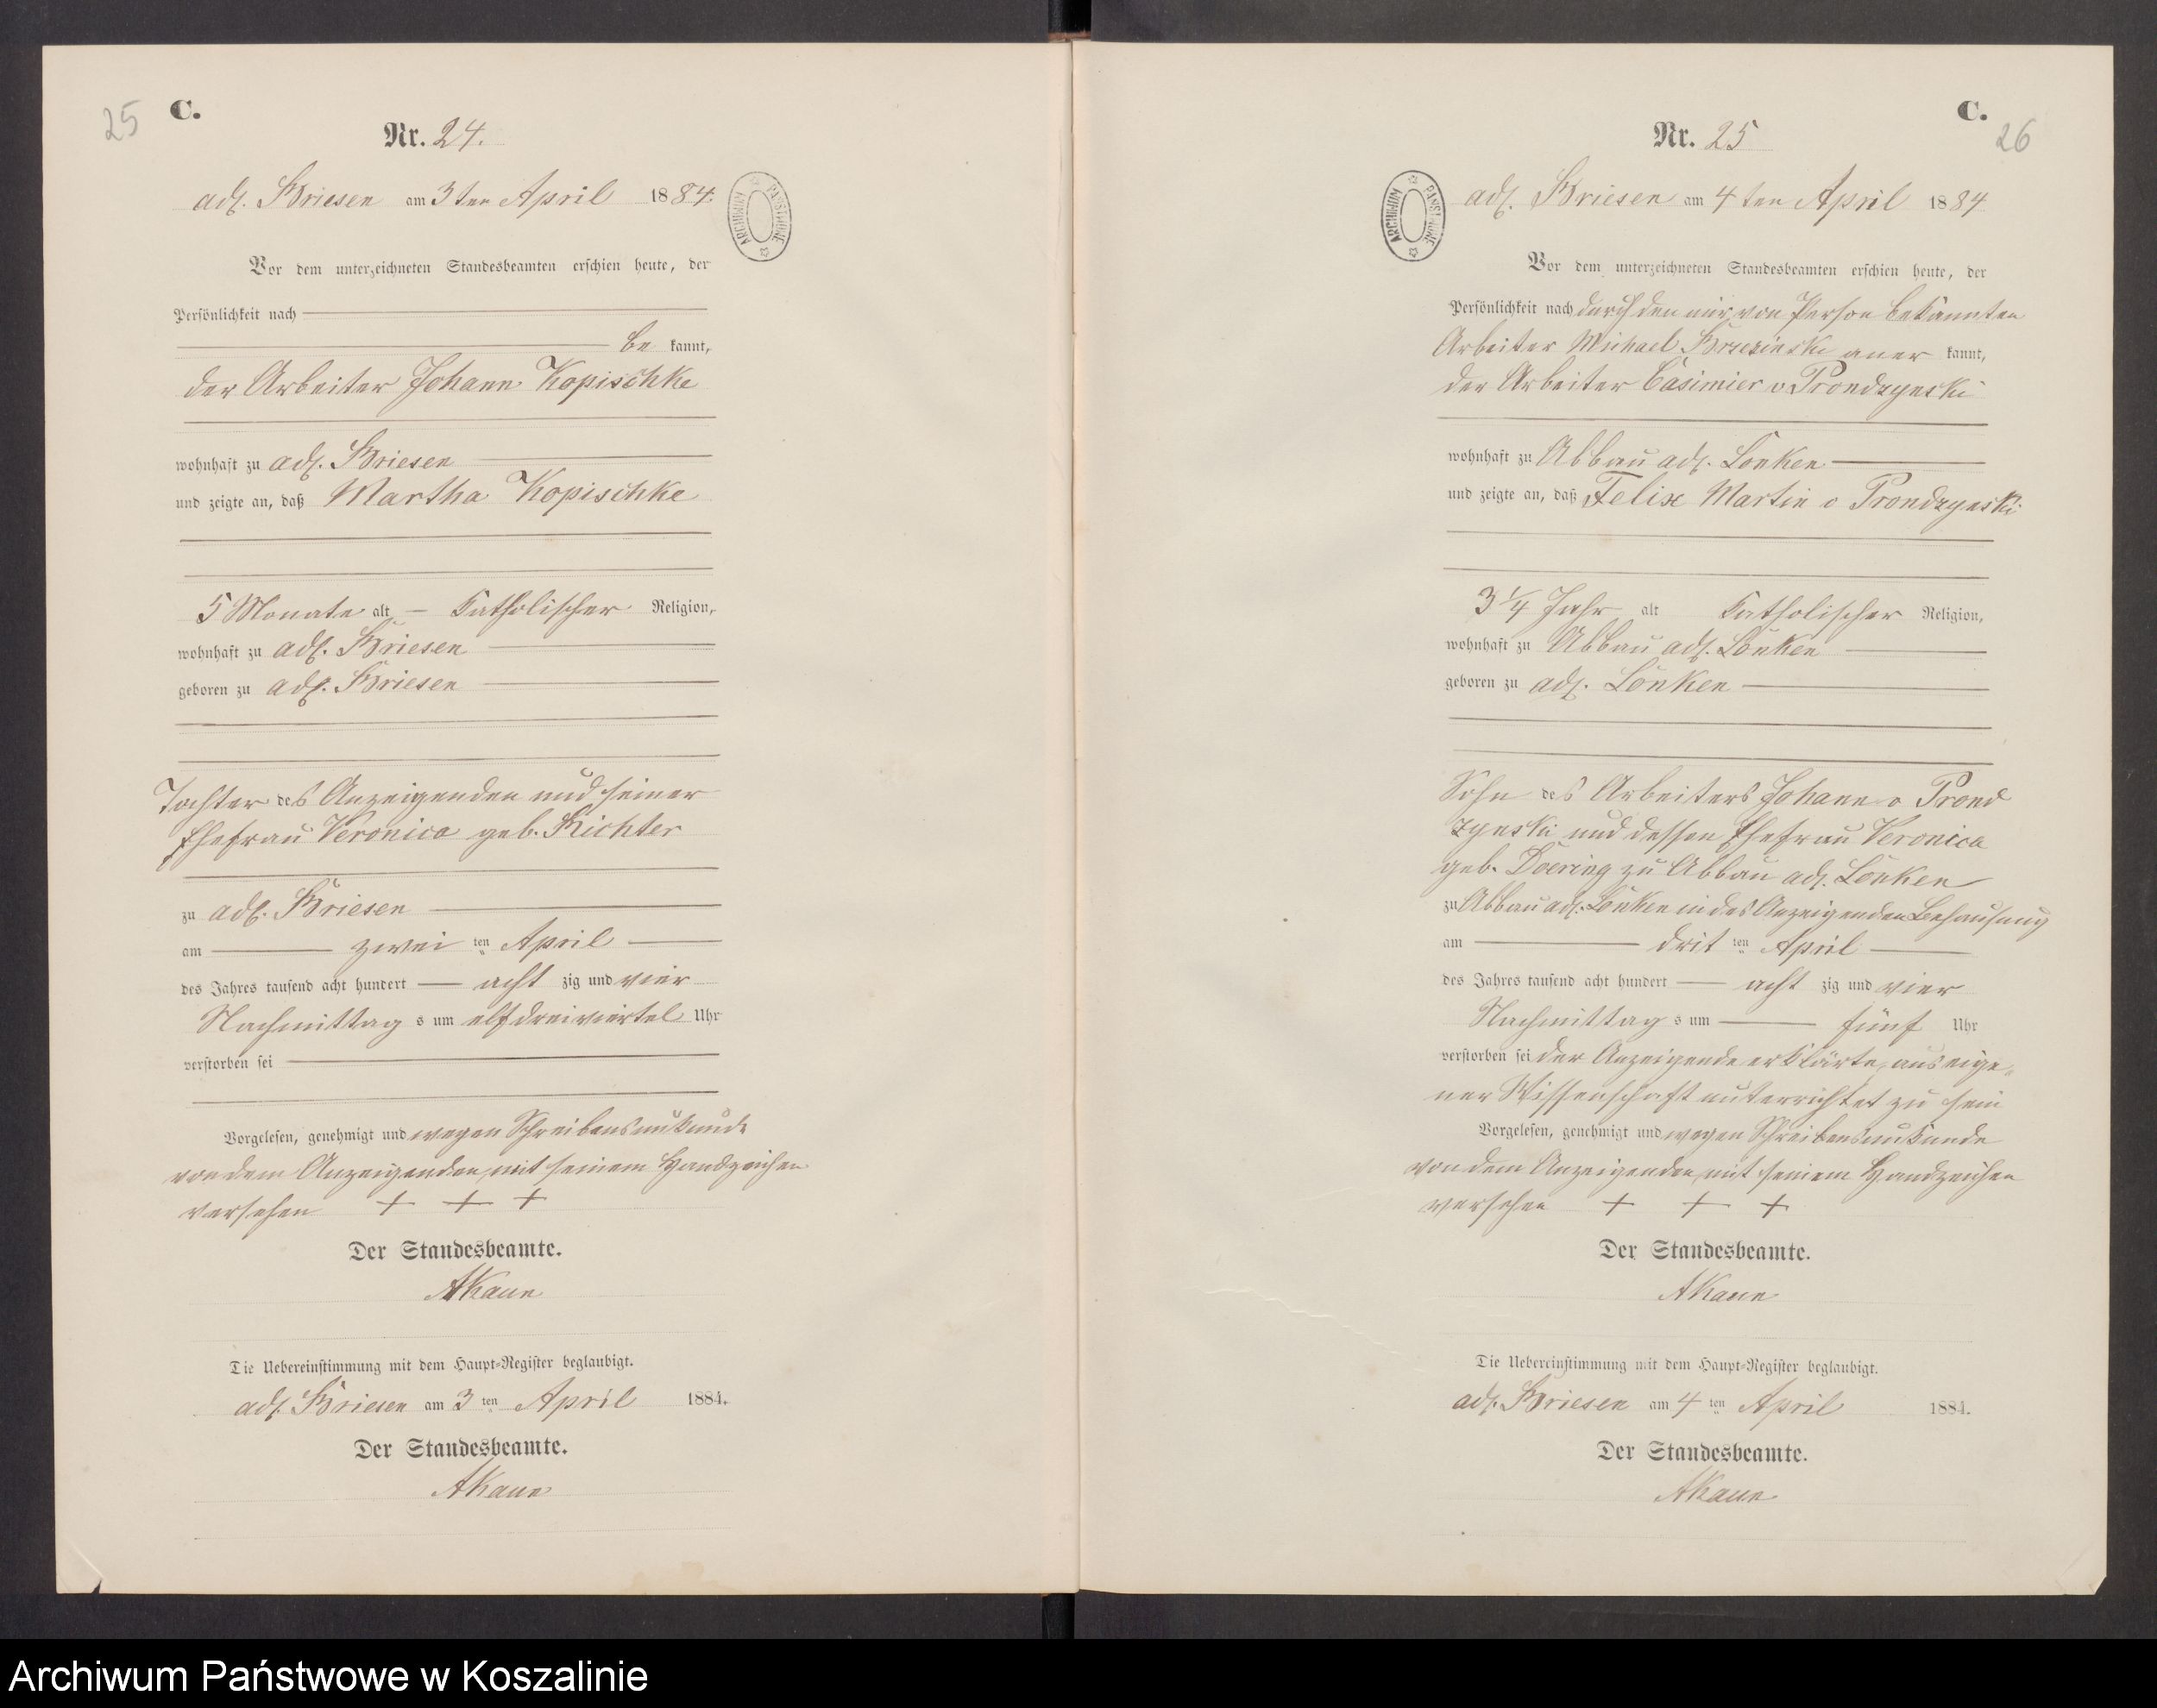 25
C.
Nr. 24.
adl. Briesen am 3ten April 1884.
ARCHIWUM PAŃSTWOWE
Vor dem unterzeichneten Standesbeamten erschien heute, der
Persönlichkeit nach
be kannt,
der Arbeiter Johann Kopischke
wohnhaft zu adl. Briesen
und zeigte an, daß Martha Kopischke
5 Monate alt katholischer Religion,
wohnhaft zu adl. Briesen
geboren zu adl. Briesen
Tochter des Anzeigenden und seiner
Ehefrau Veronica geb. Richter
zu adl. Briesen
am zwei ten April
des Jahres tausend acht hundert acht zig und vier
Nachmittag s um elfdreiviertel Uhr
verstorben sei
Vorgelesen, genehmigt und wegen Schreibensunkunde
von dem Anzeigenden mit seinem Handzeichen
versehen + + +
Der Standesbeamte.
AKaun
Die Uebereinstimmung mit dem Haupt-Register beglaubigt.
adl. Briesen am 3 ten April 1884.
Der Standesbeamte.
AKaun
C.
26
Nr. 25
adl. Briesen am 4ten April 1884
ARCHIWUM PAŃSTWOWE
Vor dem unterzeichneten Standesbeamten erschien heute, der
Persönlichkeit nach durch den mir von Person bekannten
Arbeiter Michael Brzezinski aner kannt,
der Arbeiter Casimier v Prondzynski
wohnhaft zu Abbau adl. Lonken
und zeigte an, daß Felix Martin v Prondzynski
3 1/4 Jahr alt katholischer Religion,
wohnhaft zu Abbau adl. Lonken
geboren zu adl. Lonken
Sohn des Arbeiters Johann v Prond
zynski und dessen Ehefrau Veronica
geb. Doering zu Abbau adl. Lonken
zu Abbau adl. Lonken in des Anzeigenden Behausung
am drit ten April
des Jahres tausend acht hundert acht zig und vier
Nachmittag s um fünf Uhr
verstorben sei der Anzeigende erklärte, aus eige-
ner Wissenschaft unterrichtet zu sein
Vorgelesen, genehmigt und wegen Schreibensunkunde
von dem Anzeigenden mit seinem Handzeichen
versehen + + +
Der Standesbeamte.
AKaun
Die Uebereinstimmung mit dem Haupt-Register beglaubigt.
adl. Briesen am 4 ten April 1884.
Der Standesbeamte.
AKaun
Archiwum Państwowe w Koszalinie